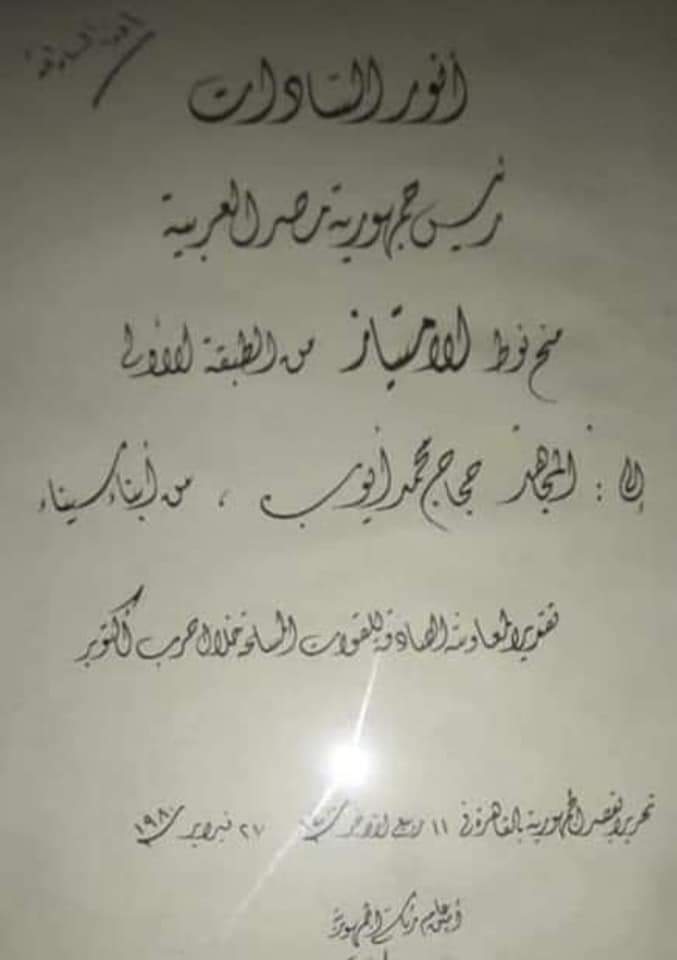 أنور السادات
رئيس جمهورية مصر العربية
منح نوط الامتياز من الطبقة الأولى
إلى : المجاهد حجاج محمد أيوب ، من أبناء سيناء
تقديرا لمعاونته الصادقة للقوات المسلحة خلال حرب أكتوبر
تحريرا بقصر الجمهورية بالقاهرة في ١١ ربيع الآخر ٢٧ فبراير ١٩٨٠
أمين عام رئاسة الجمهورية